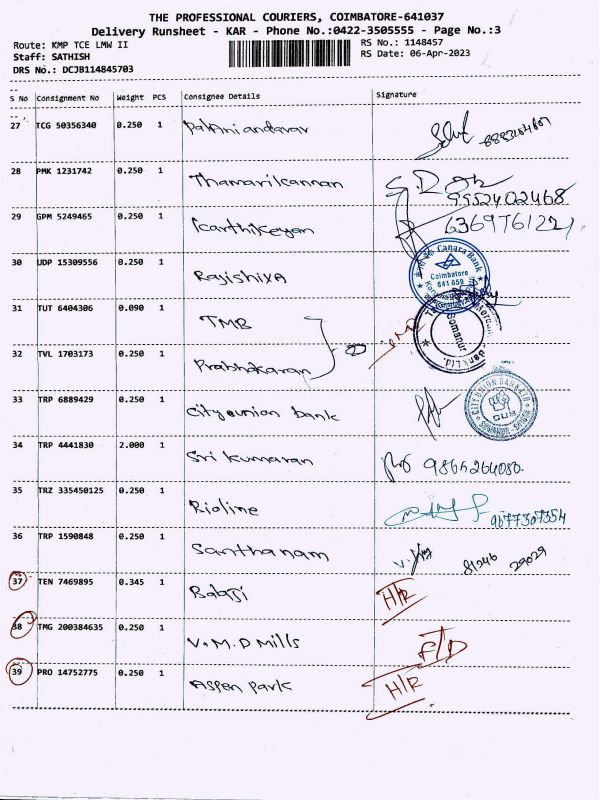 THE PROFESSIONAL COURIERS, COIMBATORE-641037
Delivery Runsheet - KAR - Phone No.:0422-3505555 - Page No.:3
Route: KMP TCE LMW II RS No.: 1148457
Staff: SATHISH RS Date: 06-Apr-2023
DRS No.: DCJB114845703
S No Consignment No Weight PCS Consignee Details Signature
27 TCG 50356340 0.250 1 Palaniandavar
28 PMK 1231742 0.250 1 Thamarikannan 9952402468
29 GPM 5249465 0.250 1 Karthikeyan 6369761221
30 UDP 15309556 0.250 1 Rajishiya Canara Bank Coimbatore 641 659
31 TUT 6404306 0.090 1 TMB Somanur
32 TVL 1703173 0.250 1 Prabhakaran
33 TRP 6889429 0.250 1 City union bank CITY UNION BANK LTD CUB
34 TRP 4441830 2.000 1 Sri Kumaran 9865264080.
35 TRZ 335450125 0.250 1 Rioline 9677307354
36 TRP 1590848 0.250 1 Santhanam 81246 29029
37 TEN 7469895 0.345 1 Babaji H/R
38 TMG 200384635 0.250 1 V.M.D Mills F/D
39 PRO 14752775 0.250 1 Aspen park H/R